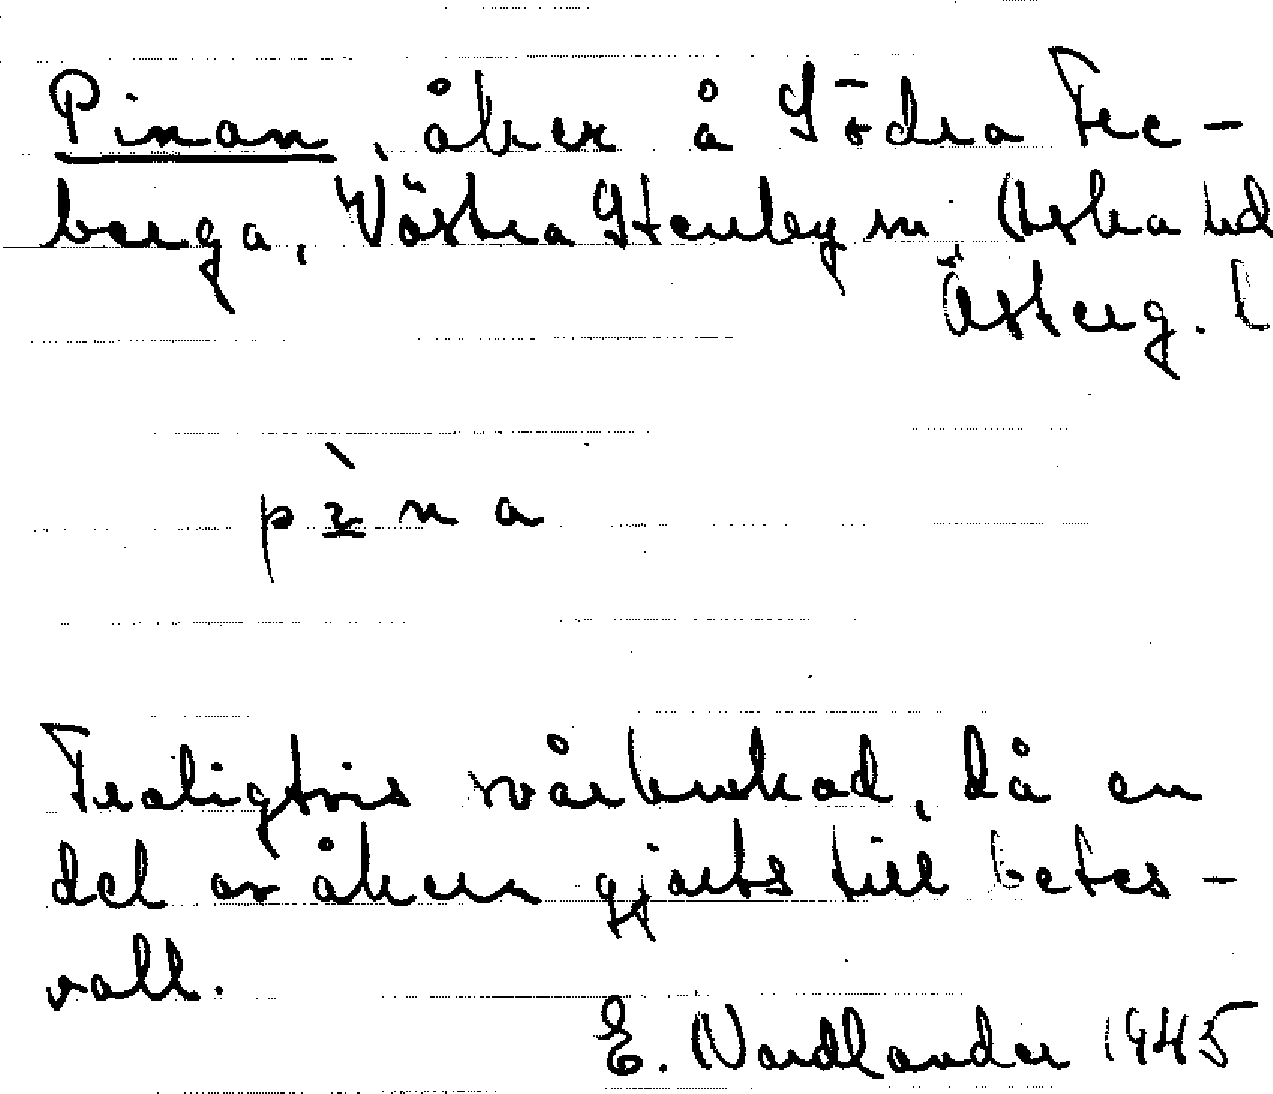 Pinan, åker å Södra Fre-
berga, Västra Stenby sn, Aska hd
Österg. l
pìna
Troligtvis svårbrukad, då en
del av åkern gjorts till betes-
vall.
E. Nordlander 1945